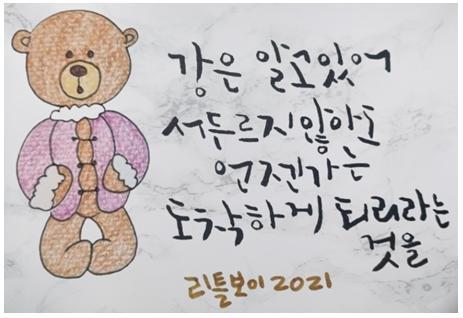 강은 알고있어
서두르지않아도
언젠가는
도착하게 되리라는
것을
리틀보이2021